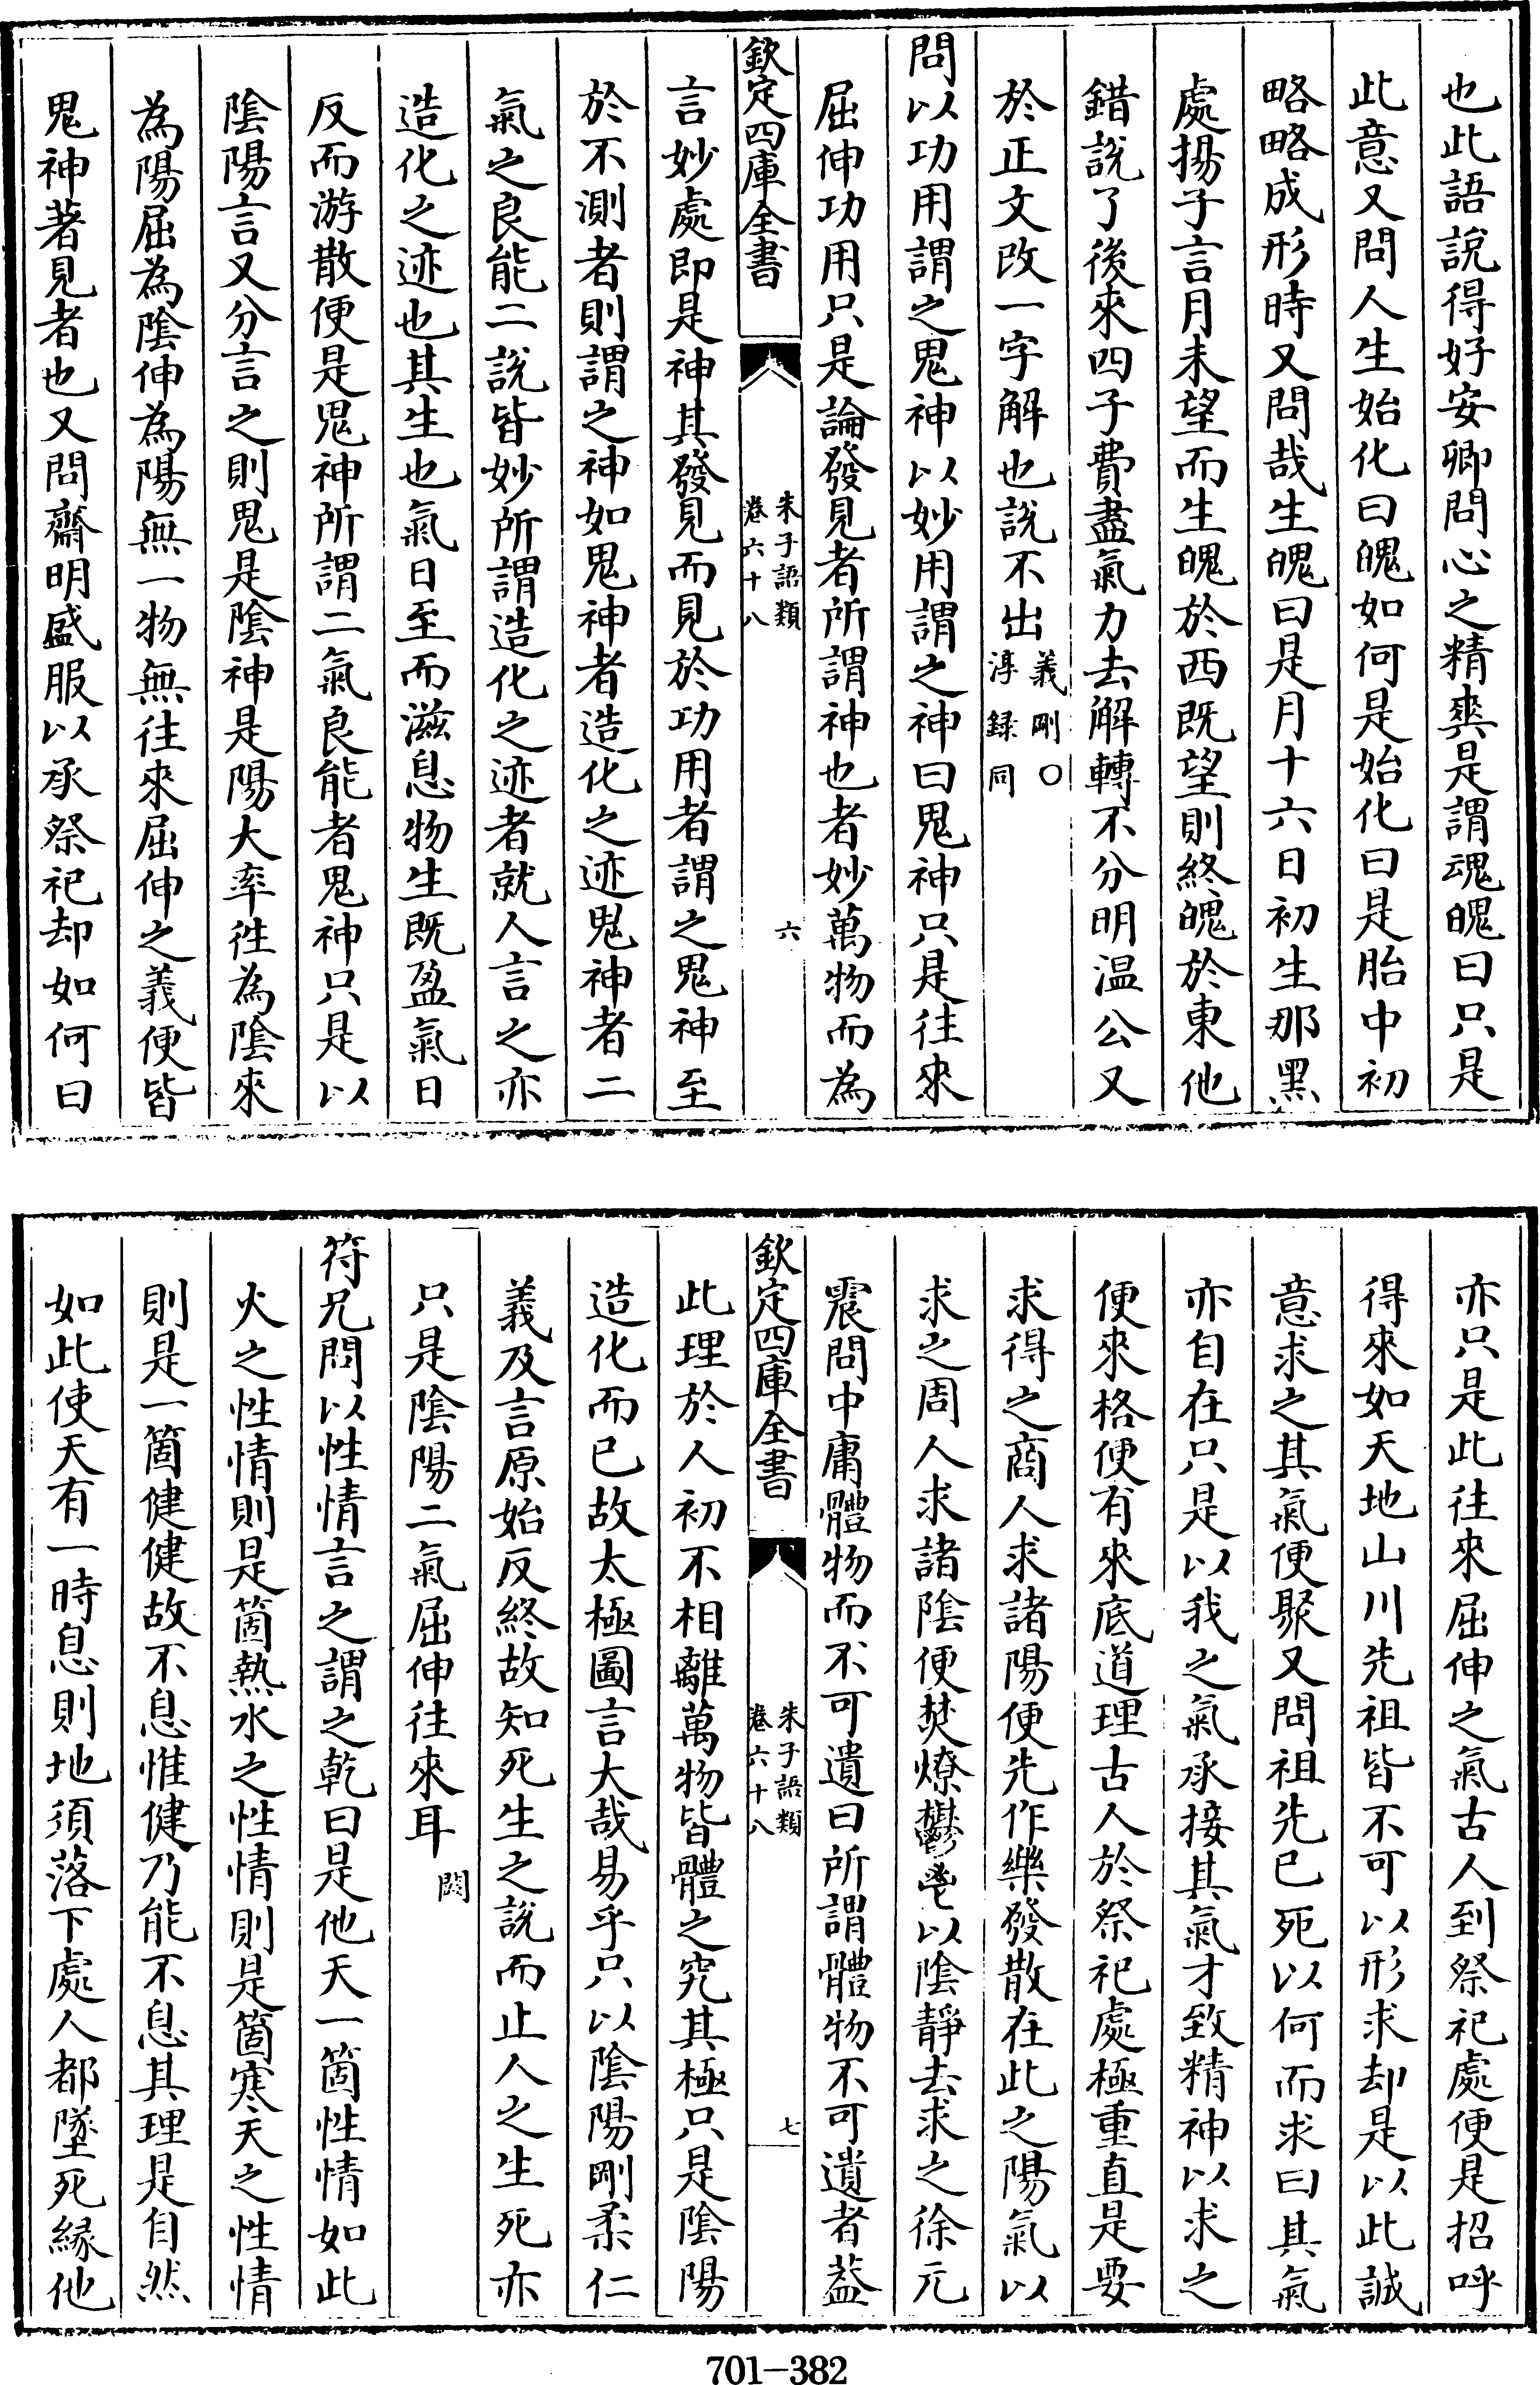 也此語說得好安卿問心之精爽是謂魂魄曰只是
此意又問人生始化曰魄如何是始化曰是胎中初
略略成形時又問哉生魄曰是月十六日初生那黑
處揚子言月未望而生魄於西既望則終魄於東他
錯說了後來四子費盡氣力去解轉不分明温公又
於正文改一字解也說不出義剛〇淳録同
問以功用謂之鬼神以妙用謂之神曰鬼神只是往來
屈伸功用只是論發見者所謂神也者妙萬物而為
欽定四庫全書
朱子語類
卷六十八
六
言妙處即是神其發見而見於功用者謂之鬼神至
於不測者則謂之神如鬼神者造化之迹鬼神者二
氣之良能二說皆妙所謂造化之迹者就人言之亦
造化之迹也其生也氣日至而滋息物生既盈氣日
反而游散便是鬼神所謂二氣良能者鬼神只是以
陰陽言又分言之則鬼是陰神是陽大率徃為陰來
為陽屈為陰伸為陽無一物無往來屈伸之義便皆
鬼神著見者也又問齋明盛服以承祭祀却如何曰
亦只是此往來屈伸之氣古人到祭祀處便是招呼
得來如天地山川先祖皆不可以形求却是以此誠
意求之其氣便聚又問祖先已死以何而求曰其氣
亦自在只是以我之氣承接其氣才致精神以求之
便來格便有來底道理古人於祭祀處極重直是要
求得之商人求諸陽便先作樂發散在此之陽氣以
求之周人求諸陰便焚燎鬱鬯以陰靜去求之徐元
震問中庸體物而不可遺曰所謂體物不可遺者葢
欽定四庫全書
朱子語類
卷六十八
七
此理於人初不相離萬物皆體之究其極只是陰陽
造化而已故太極圖言大哉易乎只以陰陽剛柔仁
義及言原始反終故知死生之說而止人之生死亦
只是陰陽二氣屈伸往來耳 閎
符兄問以性情言之謂之乾曰是他天一箇性情如此
火之性情則是箇熱水之性情則是箇寒天之性情
則是一箇健健故不息惟健乃能不息其理是自然
如此使天有一時息則地須落下處人都墜死緣他
701-382